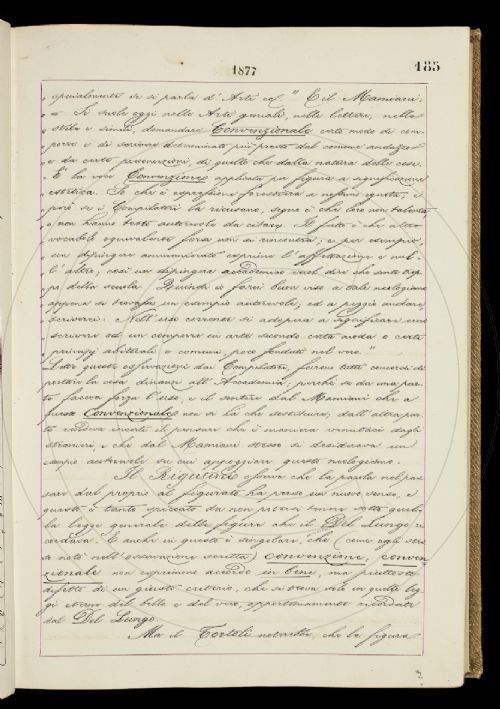 1877
185
specialmente se si parla d'Arti ec." E il Mamiani:
" Si suole oggi nelle Arti geniali, nelle lettere, nello
stile e simili, domandare Convenzionale certo modo di com-
porre e di scrivere determinato più presto dal comune andazzo
e da certe prevenzioni, di quello che dalla natura delle cose.
È la voce Convenzione applicata per figura a significazione
estetica. Io che è espressione forestiera a nessuno ignota; e
però se i Compilatori la ricevono, segno è che loro non talenta
o non hanno testo autorevole da citare. Il fatto è che altro
vocabolo equivalente fora non si rincontra; e per esempio,
un dipingere ammanierato esprime l'affettazione e nul-
l'altro, così un dipingere accademico vuol dire che sente trop-
pa della scuola. Quindi io farei buon viso a tale neologismo
appena si trovasse un esempio autorevole, ed a peggio andare
scriverei: Nell'uso corrente si adopera a significare uno
scrivere od un comporre in arte secondo certa moda e certi
principj arbitrali e comuni, poco fondati nel vero."
Lette queste osservazioni dai Compilatori, furono tutti concordi di
portare la cosa dinanzi all'Accademia; perchè se da una par-
te faceva forza l'uso, e il sentire dal Mamiani che a
Convenzionale non si ha che sostituire, dall'altra par-
te rendeva incerti il pensare che è maniera venutaci dagli
stranieri, e che dal Mamiani stesso si desiderava un
esempio autorevole su cui appoggiare questo neologismo.
Il Rigutini osserva che la parola nel pas-
sare dal proprio al figurato ha preso un nuovo senso, e
questo è tanto spiccato da non potersi tenere sotto quella
la legge generale delle figure che il Del Lungo ri-
cordava. E anche in questo è singolare, che (come egli stes-
so notò nell'osservazione scritta) convenzione, conven-
zionale non esprimono accordo in bene, ma piuttosto
difetto di un giusto criterio, che si trova solo in quelle leg-
gi eterne del bello e del vero, opportunamente ricordate
dal Del Lungo.
Ma il Tortoli notava, che la figura